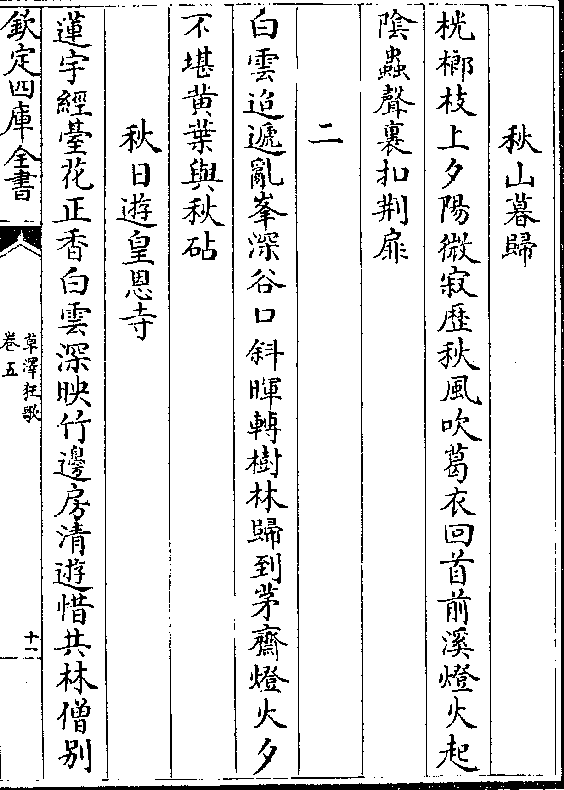 秋山暮歸
桄榔枝上夕陽微寂歴秋風吹葛衣回首前溪燈火起
陰蟲聲裏扣荆扉
二
白雲迢遞亂峯深谷口斜暉轉樹林歸到茅齋燈火夕
不堪黄葉與秋砧
秋日遊皇恩寺
蓮宇經臺花正香白雲深映竹邊房清遊惜共林僧别
欽定四庫全書
草澤狂歌
卷五
十二